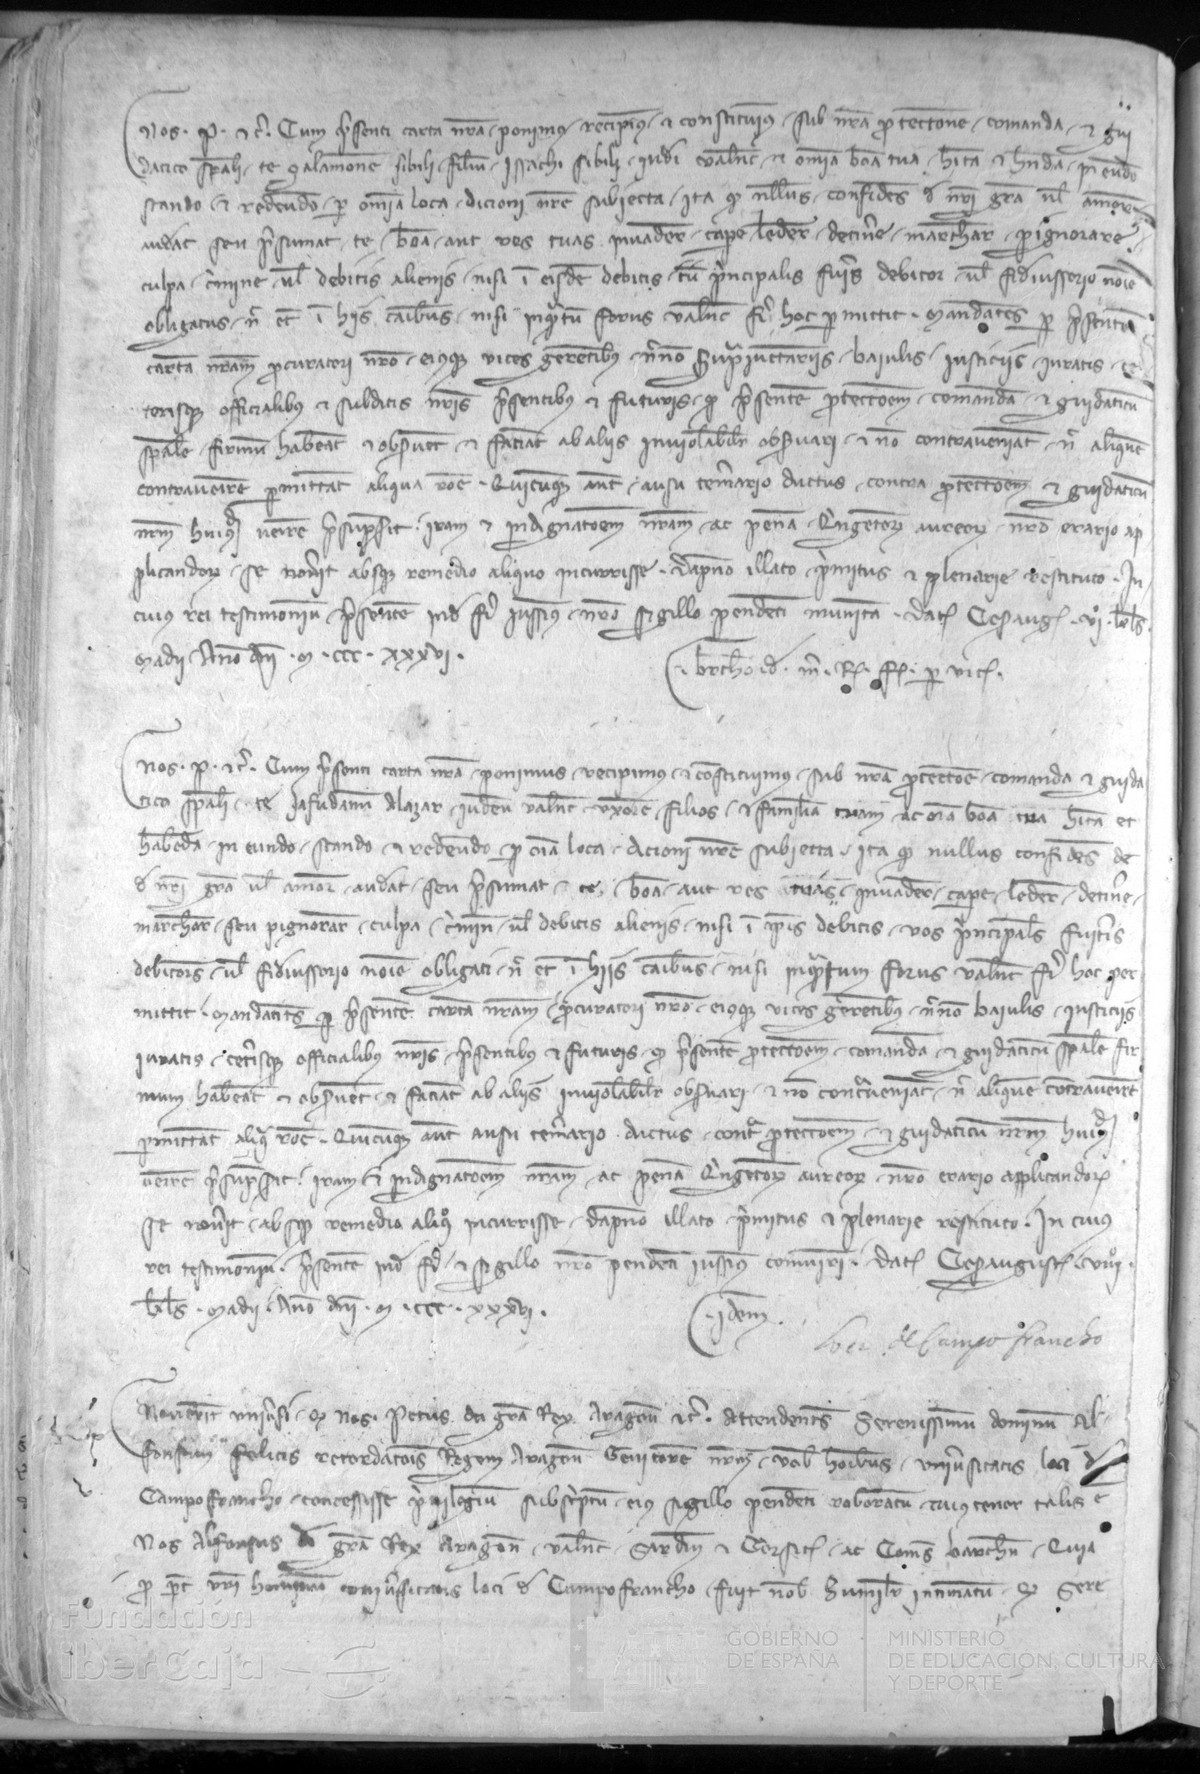 Nos · P · etc̃ · Cum p̃senti carta nrã ponimus recipimus et constituimus sub nrã protectione comanda et gui
datico sp̃ali te Salamonẽ sibili filiũ Issachi sibili iudei Valñc et om̃ia bõa tua hĩta et hñda in eundo
stando et redeundo per om̃ia loca dicioni nrẽ subiecta ita quod nullus confidẽs de nrĩ grã uel amore
audeat seu p̃sumat te bõa aut res tuas inuadere cape ledere detinẽ marchar pignorare
culpa c̃mine uel debitis alienis nisi ĩ eisdẽ debitis tu p̃ncipalis fuĩs debitor uel fidiussorio noĩe
obligatus nec et ĩ hiis casibus nisi inq̃tũ forus Valñc fi hoc permittit mandantes per p̃sentẽ
cartã nrãm procuratori nrõ eiusque uices gerentibus necnõ supraiunctariis baiulis iusticiis iuratis ce
terisque officialibus et subditis nrĩs p̃sentibus et futuris quod p̃sentẽ protectionem comandã et guidaticũ
sp̃alẽ firmũ habeant et obseruent et faciant ab aliis inuiolabiliter obseruari et nõ contraueniant nec aliquẽ
contrauenire permittant aliqua rõe Quicumque aut ausu tem̃ario ductus contra protectionem et guidaticũ
nrm̃ huiusmodi uenire p̃supserit iram et indignationem nrãm ac penã Q̃ngentorum aureorum nrõ erario ap
plicandorum se nouerit absque remedio aliquo incurrisse dãpno illato p̃mitus et plenarie restituto In
cuius rei testimoniũ p̃sentẽ inde fi iussimus nrõ sigillo pendenti munitã dat Cesaraug vi kl̃s
Madii Anõ dñi · M · ccc · xxxvi ·
Nos · P · etc̃ · Cum p̃senti carta nrã ponimus recipimus et constituimus sub nrã protectiõe comanda et guida
tico sp̃ali te Jafudanũ Alazar iudeũ Valñc uxorẽ filios et familiã tuam ac oĩa bõa tua hĩta et
habẽda in eundo stando et redeundo per oĩa loca dicioni nrẽ subiecta ita quod nullus confidẽs de
de nrĩ grã uel amore audeat seu p̃sumat te bõa aut res tuas inuadere cape ledere detinẽ
marchar seu pignorar culpa c̃min uel debitis alienis nisi ĩ ip̃is debitis uos p̃ncipales fueritis
debitores uel fidiussorio noĩe obligati nec et ĩ hiis casibus nisi inquantum forus Valñc fi hoc per
mittit mandantes per p̃sentẽ cartã nrãm procuratori nrõ eiusque uices gerentibus necnõ baiulis iusticiis
iuratis ceterisque officialibus nrĩs p̃sentibus et futuris quod p̃sentẽ protectionem comandã et guidaticũ sp̃alẽ fir
mum habeant et obseruent et faciant ab aliis inuiolabiliter obseruari et nõ contraueniant nec aliquẽ contrauenire
permittant aliqua rõe Quicumque aut ausu tem̃ario ductus contra protectionem et guidaticũ nrm̃ huiusmodi
uenire p̃supserit iram et indignationem nrãm ac penã Q̃ngentorum aureorum nrõ erario applicandorum
se nouerit absque remedio aliquo incurrisse dãpno illato p̃mitus et plenarie restituto In cuius
rei testimoniũ p̃sentẽ inde fi et sigillo nrõ pendenti iussimus comuniri dat Cesaraugust viii
kl̃s Madii Anõ dñi · M · ccc · xxxvi ·
Idem
loci de Campo francho
Nouerint uniũsi quod Nos Petrus dei grã Rex Aragon etc̃ Attendentes Serenissimũ dominũ Al
fonsum felicis recordationis Regem Aragon Genitorẽ nrm̃ uob̃ hoĩbus uniuersitatis loci de
Campo francho concessisse p̃uilegiũ subscriptũ eius sigillo pendenti roboratũ cuius tenor talis ẽ
Nos Alfonsus dei grã Rex Aragon Valñc Sardiñ et Corsic ac Comes barchñ Quia
pro parte uri hominũ uniuersitatis loci de Campo francho fuit nob̃ humiliter intimatũ quod Sere
Fundación
iberCaja
GOBIERNO
DE ESPAÑA
MINISTERIO
DE EDUCACIÓN, CULTURA
Y DEPORTE